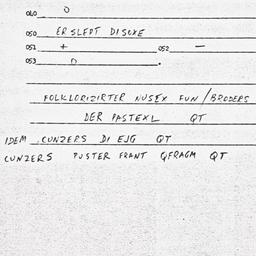 040 O
050 ER SLEPT DISOXE
051 + 052 —
053 O .
FOLKLORIZIRTER NUSEX FUN / BRODERS
DER PASTEXL QT
IDEM CUNZERS DI EJG QT
CUNZERS PUSTER FRANT QFRAGM QT